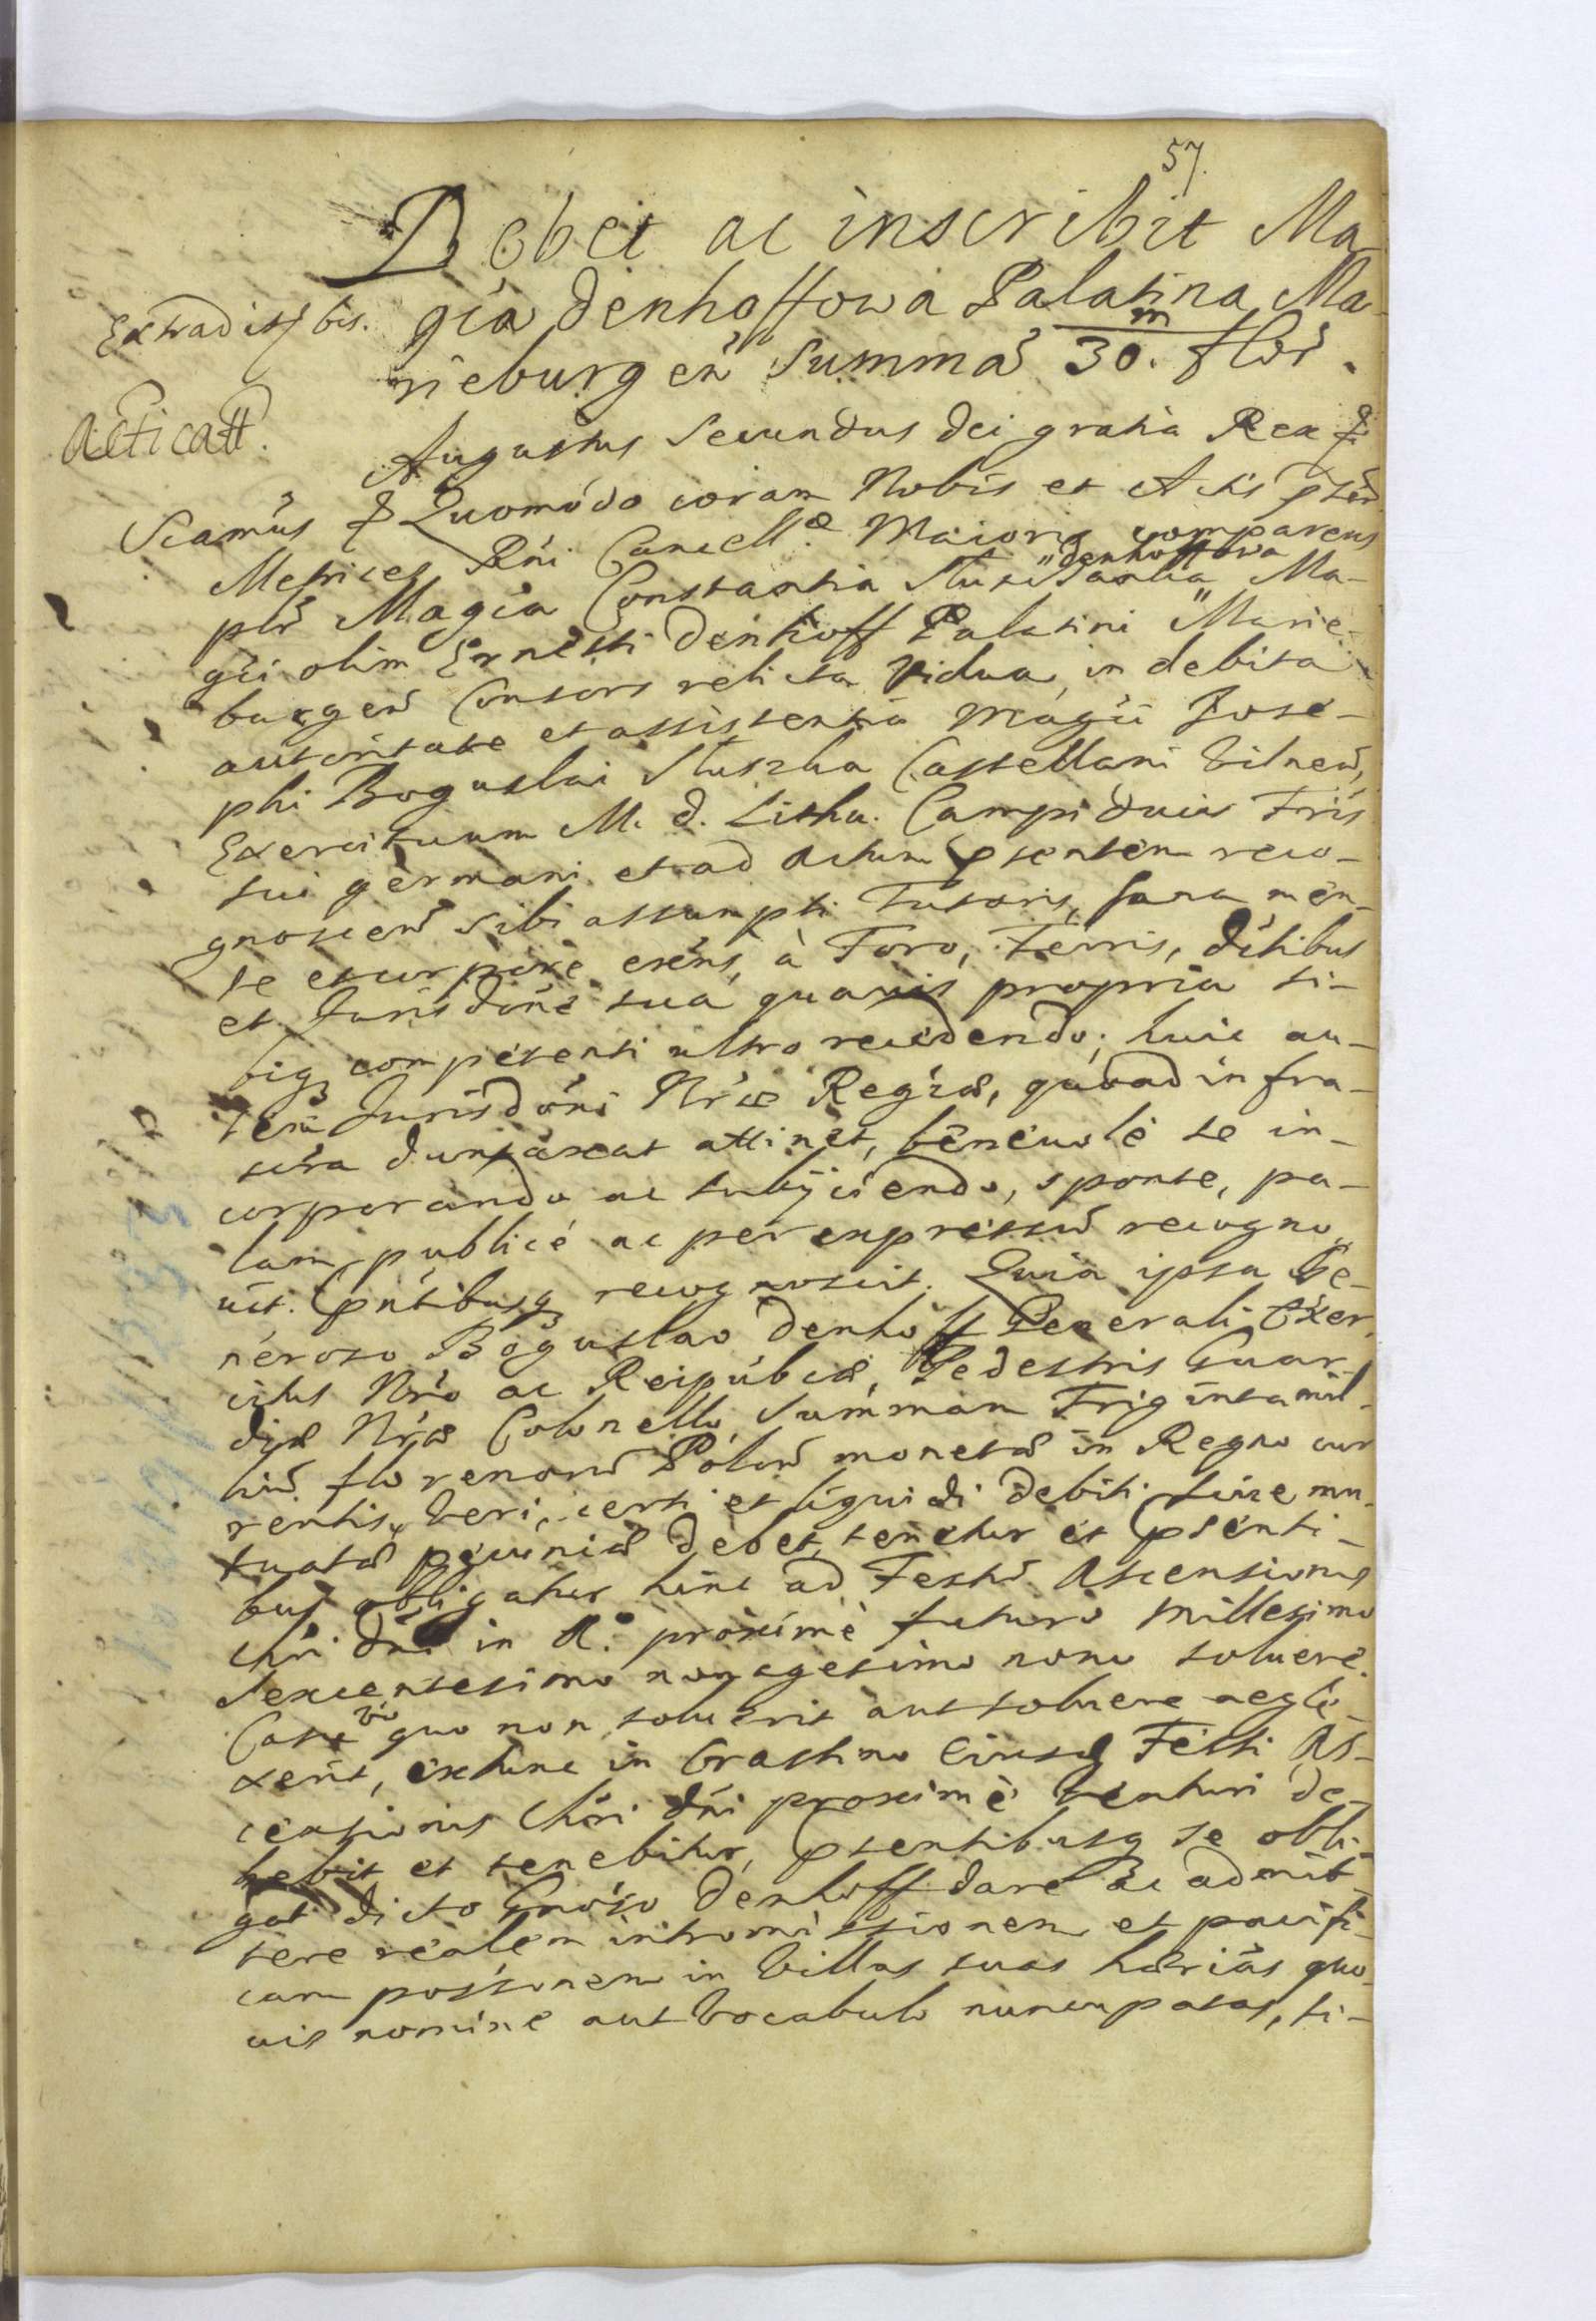 57.
Debet ac inscribit Ma-
Extradit bis.
gća Denhoffowa Palatina Ma-
rieburgeñ Summã 30. m flor.
Acticatt.
Augustus Secundus Dei gratia Rex
Scamus Quomodo coram Nobis et Actis
Metrices Rńi Cancell. Maioris comparens
plr Magća Constantia Denhoffowa Ma-
gći olim Ernesti Denhoff Palatini Marie-
burgeñ Consors relicta Vidua, in debita
autoritate et assistentia Magći Jose-
phi Boguslai Sluszka Castellani Vilneñ,
Exercituum M. D. Lithu. Campi Ducis Fris
sui germani et ad Actum psentem reco-
gnosceñ sibi assumpti Tutoris, sana men-
te et corpore exẽns, à Foro, Terris, ditibus
et Jurisdõne sua quavis propria si-
biq competenti ultro recedendo; huic au-
tem Jurisdõni Nræ Regiæ, quoad infra-
scta duntaxat attinet, beneuolè se in-
corporando ac subijciendo, sponte, pa-
lam, publicè ac per expressũ recogno-
uit. Pntibusq recognoscit. Quia ipsa Ge-
neroso Boguslao Denhoff Generali Exer-
citus Nro ac Reipublcæ, Pedestris Guar-
diæ Nræ Colonello, Summam Triginta mil-
liũ florenorũ Poloñ monetæ in Regno cur-
rentis, veri, certi et liquidi debiti siue mu-
tuatæ pecuniæ debet, tenetur et psenti-
bus obligatur hinc ad Festũ Ascensionis
Chri Dni in A. proximè futuro Millesimo
Sexcentesimo nonagesimo nono soluere.
Casu vo quo non soluerit aut soluere negle-
xerit, extunc in Crastino Eiusd Festi As-
censionis Chri Dni proximè venturi de-
bebit et tenebitur, psentibusq se obli-
gat dicto Gnoso Denhoff dare ac admit-
tere realem intromissionem et pacifi-
cam possonem in Villas suas hæriãs quo-
uis nomine aut vocabulo nuncupatas, si-